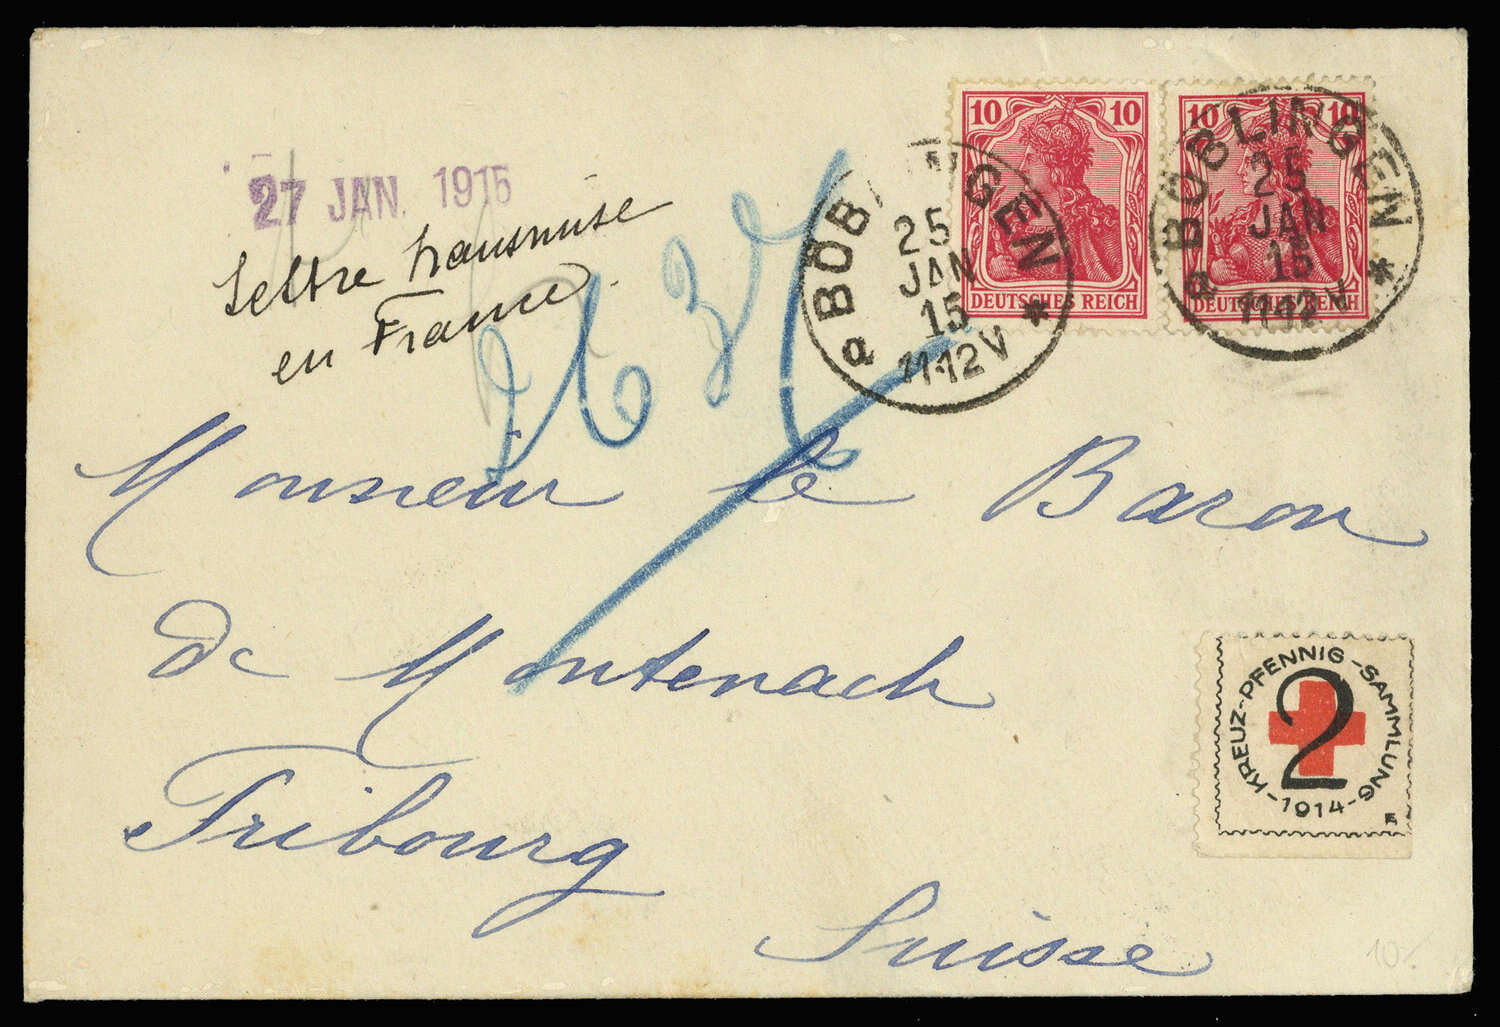 27 JAN. 1915
Lettre transmise
en France.
10 10
DEUTSCHES REICH
10 10
DEUTSCHES REICH
BÖBLINGEN
25
JAN
15
11-12 V
a *
BÖBLINGEN
25
JAN
15
11-12 V
a *
Monsieur le Baron
de Montenach
Fribourg
Suisse
KREUZ-PFENNIG-SAMMLUNG
2
-1914-